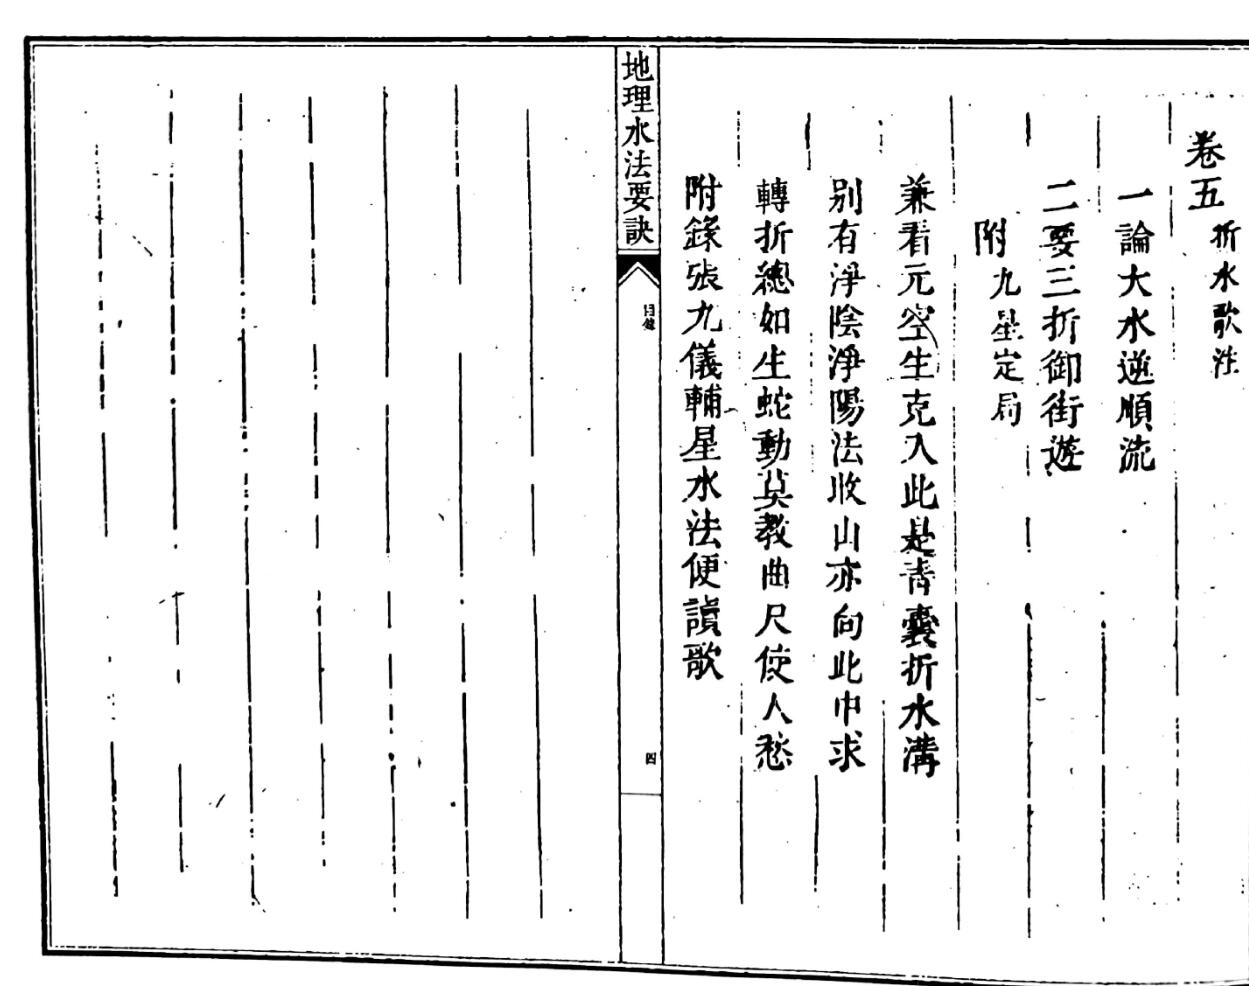 卷五 折水歌注
一論大水逆順流
二要三折御街遊
附九星定局
兼看元空生克入此是青囊折水溝
别有淨陰淨陽法收山亦向此中求
轉折總如生蛇動莫教曲尺使人愁
附錄張九儀輔星水法便讀歌
地理水法要訣
目錄
四